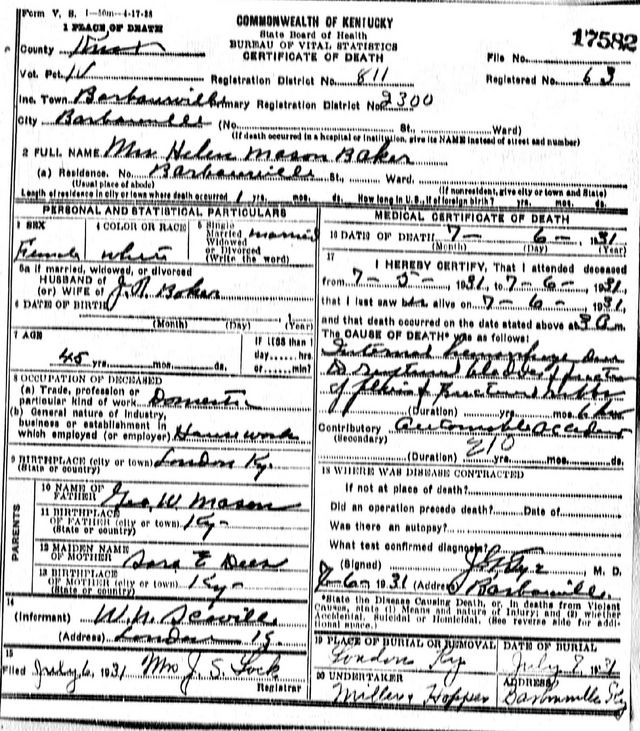 Form V. S. 1-50m-4-17-28
COMMONWEALTH OF KENTUCKY
State Board of Health
BUREAU OF VITAL STATISTICS
CERTIFICATE OF DEATH
17582
1 PLACE OF DEATH
County Knox
File No.
Vot. Pct. IV
Registration District No. 811
Registered No. 63
Inc. Town Barbourville
Primary Registration District No. 2300
City Barbourville (No. St., Ward)
(If death occurred in a hospital or institution, give its NAME instead of street and number)
2 FULL NAME Mrs Helen Mason Baker
(a) Residence. No. Barbourville St., Ward.
(Usual place of abode) (If nonresident, give city or town and State)
Length of residence in city or town where death occurred 1 yrs. mos. ds. How long in U. S., if of foreign birth? yrs. mos. ds.
PERSONAL AND STATISTICAL PARTICULARS
3 SEX Female
4 COLOR OR RACE white
5 Single Married Widowed or Divorced (Write the word) married
5a If married, widowed, or divorced
HUSBAND of
(or) WIFE of J. R. Baker
6 DATE OF BIRTH
(Month) (Day) (Year)
7 AGE
45 yrs. mos. ds.
If LESS than 1 day hrs. or min?
8 OCCUPATION OF DECEASED
(a) Trade, profession or particular kind of work Domestic
(b) General nature of industry, business or establishment in which employed (or employer) Housework
9 BIRTHPLACE (city or town) London Ky.
(State or country)
PARENTS
10 NAME OF FATHER Geo. W. Mason
11 BIRTHPLACE OF FATHER (city or town) Ky-
(State or country)
12 MAIDEN NAME OF MOTHER Sara E
13 BIRTHPLACE OF MOTHER (city or town) Ky-
(State or country)
14
(Informant) W. N. Scoville
(Address) London Ky.
15
Filed July 6, 1931 Mrs J. S. Lock
Registrar
MEDICAL CERTIFICATE OF DEATH
16 DATE OF DEATH 7- 6- 1931
(Month) (Day) (Year)
17
I HEREBY CERTIFY, That I attended deceased
from 7-5-1931, to 7-6-1931,
that I last saw alive on 7-6-1931,
and that death occurred on the date stated above at 3 a m.
The CAUSE OF DEATH* was as follows:
Internal Hemorrhage Due
to ruptured bladder fracture
of & fractured ribs
(Duration) yrs. mos. 6 hrs
Contributory Automobile accident
(Secondary) 210
(Duration) yrs. mos. ds.
18 WHERE WAS DISEASE CONTRACTED
If not at place of death?
Did an operation precede death? Date of
Was there an autopsy?
What test confirmed diagnosis?
(Signed) M. D.
7-6-1931 (Address) Barbourville
*State the Disease Causing Death, or, in deaths from Violent Causes, state (1) Means and nature of Injury; and (2) whether Accidental, Suicidal or Homicidal. (See reverse side for additional space.)
19 PLACE OF BURIAL OR REMOVAL London Ky
DATE OF BURIAL July 7, 1931
20 UNDERTAKER Miller & Hopper
ADDRESS Barbourville Ky